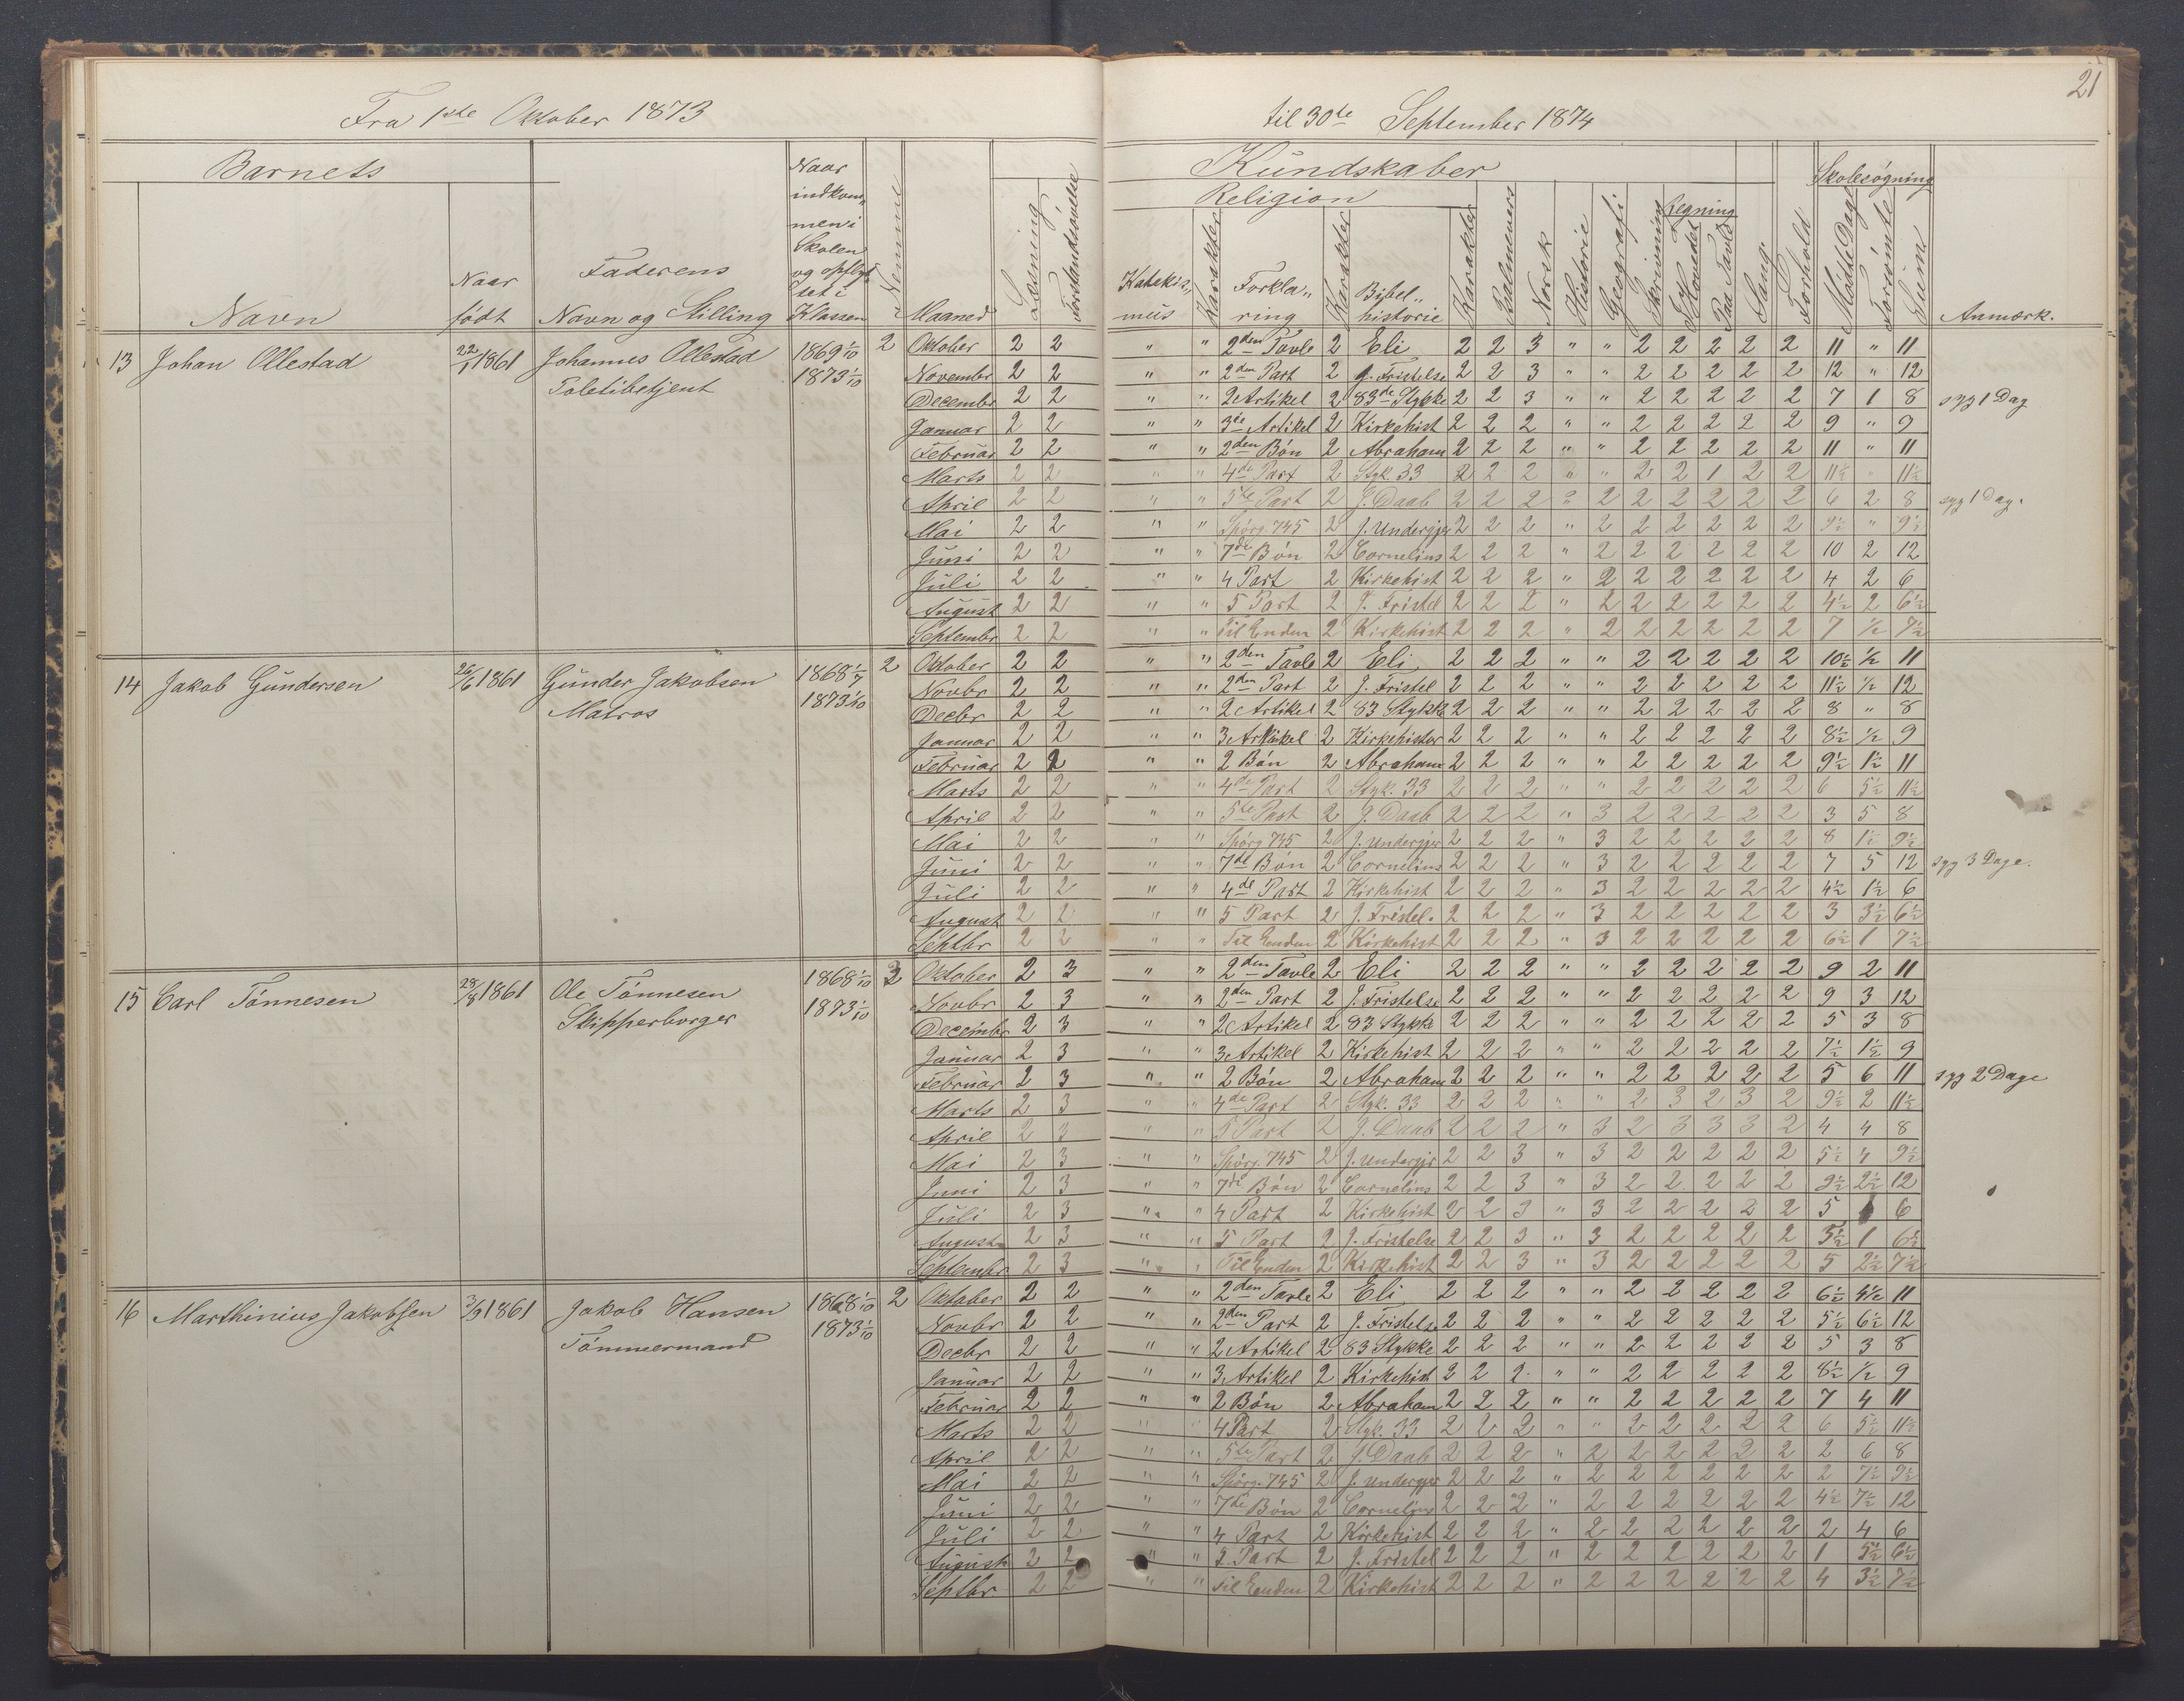 21
Fra 1ste Oktober 1873 til 30te September 1874
Barnets
Navn
Naar født
Faderens Navn og Stilling
Naar indkommen i Skolen og opflyttet i Klassen
Nemme
Maaned
Læsning
Forstandsøvelse
Kundskaber
Religion
Katekismus
Karakter
Forklaring
Karakter
Bibelhistorie
Karakter
Psalmevers
Norsk
Historie
Geografi
Skrivning
Regning
I Hovedet
Paa Tavle
Sang
Forhold
Skolesøgning
Mødte Dage
Forsømte
Suma
Anmærk.
13 Johan Ollestad 22/1 1861 Johannes Ollestad 1869 1/10 2 Oktober 2 2 " " 2den Tavle 2 Eli 2 2 3 " " 2 2 2 2 2 11 " 11
Toletibetjent 1873 1/10 Novembr 2 2 " " 2den Part 2 J. Fristelse 2 2 3 " " 2 2 2 2 2 12 " 12
Decembr 2 2 " " 2 Artikel 2 83de Stykke 2 2 3 " " 2 2 2 2 2 7 1 8 syg 1 Dag
Januar 2 2 " " 3de Artikel 2 Kirkehist 2 2 2 " " 2 2 2 2 2 9 " 9
Februar 2 2 " " 2den Bön 2 Abraham 2 2 2 " " 2 2 2 2 2 11 " 11
Marts 2 2 " " 4de Part 2 Styk 33 2 2 2 " " 2 2 1 2 2 11½ " 11½
April 2 2 " " 5te Part 2 J. Daab 2 2 2 2 2 2 2 2 2 2 6 2 8 syg 1 Dag.
Mai 2 2 " " Spörg. 745 2 J. Undergjer 2 2 2 " 2 2 2 2 2 2 9½ " 9½
Juni 2 2 " " 7de Bön 2 Cornelius 2 2 2 " 2 2 2 2 2 2 10 2 12
Juli 2 2 " " 4 Part 2 Kirkehist 2 2 2 " 2 2 2 2 2 2 4 2 6
August 2 2 " " 5 Part 2 J. Fristel 2 2 2 " 2 2 2 2 2 2 4½ 2 6½
Septembr 2 2 " " Til Enden 2 Kirkehist 2 2 2 " 2 2 2 2 2 2 7 ½ 7½
14 Jakob Gundersen 26/6 1861 Gunder Jakobsen 1868 1/7 2 Oktober 2 2 " " 2den Tavle 2 Eli 2 2 2 " " 2 2 2 2 2 10½ ½ 11
Matros 1873 1/10 Novbr 2 2 " " 2den Part 2 J. Fristel 2 2 2 " " 2 2 2 2 2 11½ ½ 12
Decbr 2 2 " " 2 Artikel 2 83 Stykke 2 2 2 " " 2 2 2 2 2 8 " 8
Januar 2 2 " " 3 Artikel 2 Kirkehistor 2 2 2 " " 2 2 2 2 2 8½ ½ 9
Februar 2 2 " " 2 Bön 2 Abraham 2 2 2 " " 2 2 2 2 2 9½ 1½ 11
Marts 2 2 " " 4de Part 2 Styk. 33 2 2 2 " " 2 2 2 2 2 6 5½ 11½
April 2 2 " " 5te Part 2 J. Daab 2 2 2 " 3 2 2 2 2 2 3 5 8
Mai 2 2 " " Spörg 745 2 J. Undergjer 2 2 2 " 3 2 2 2 2 2 8 1½ 9½
Juni 2 2 " " 7de Bön 2 Cornelius 2 2 2 " 3 2 2 2 2 2 7 5 12 syg 3 Dage.
Juli 2 2 " " 4de Part 2 Kirkehist 2 2 2 " 3 2 2 2 2 2 4½ 1½ 6
August 2 2 " " 5 Part 2 J. Fristel. 2 2 2 " 3 2 2 2 2 2 3 3½ 6½
Septbr 2 2 " " Til Enden 2 Kirkehist 2 2 2 " 3 2 2 2 2 2 6½ 1 7½
15 Carl Tönnesen 28/8 1861 Ole Tönnesen 1868 1/10 2 Oktober 2 3 " " 2den Tavle 2 Eli 2 2 2 " " 2 2 2 2 2 9 2 11
Skipperborger 1873 1/10 Novbr 2 3 " " 2den Part 2 J. Fristelse 2 2 2 " " 2 2 2 2 2 9 3 12
Decembr 2 3 " " 2 Artikel 2 83 Stykke 2 2 2 " " 2 2 2 2 2 5 3 8
Januar 2 3 " " 3 Artikel 2 Kirkehist 2 2 2 " " 2 2 2 2 2 7½ 1½ 9
Februar 2 3 " " 2 Bön 2 Abraham 2 2 2 " " 2 2 2 2 2 5 6 11 syg 2 Dage
Marts 2 3 " " 4de Part 2 Styk. 33 2 2 2 " " 2 3 2 3 2 9½ 2 11½
April 2 3 " " 5 Part 2 J. Daab 2 2 2 " 3 2 3 3 3 2 4 4 8
Mai 2 3 " " Spörg. 745 2 J. Undergjr 2 2 3 " 3 2 2 2 2 2 5½ 4 9½
Juni 2 3 " " 7de Bön 2 Cornelius 2 2 3 " 3 2 2 2 2 2 9½ 2½ 12
Juli 2 3 " " 4 Part 2 Kirkehist 2 2 3 " 3 2 2 2 2 2 5 6
August 2 3 " " 5 Part 2 J. Fristelse 2 2 3 " 3 2 2 2 2 2 5½ 1 6½
Septembr 2 3 " " Til Enden 2 Kirkehist 2 2 3 " 3 2 2 2 2 2 5 2½ 7½
16 Marthinius Jakobsen 3/9 1861 Jakob Hansen 1868 1/10 2 Oktober 2 2 " " 2den Tavle 2 Eli 2 2 2 " " 2 2 2 2 2 6½ 4½ 11
Tömmermand 1873 1/10 Novbr 2 2 " " 2den Part 2 J. Fristelse 2 2 2 " " 2 2 2 2 2 5½ 6½ 12
Decbr 2 2 " " 2 Artikel 2 83 Stykke 2 2 2 " " 2 2 2 2 2 5 3 8
Januar 2 2 " " 3 Artikel 2 Kirkehist 2 2 2 " " 2 2 2 2 2 8½ ½ 9
Februar 2 2 " " 2 Bön 2 Abraham 2 2 2 " " 2 2 2 2 2 7 4 11
Marts 2 2 " " 4 Part 2 Styk. 33 2 2 2 " " 2 2 2 2 2 6 5½ 11½
April 2 2 " " 5te Part 2 J. Daab 2 2 2 " 2 2 2 2 2 2 2 6 8
Mai 2 2 " " Spörg. 745 2 J. Undergjer 2 2 2 " 2 2 2 2 2 2 2 7½ 9½
Juni 2 2 " " 7de Bön 2 Cornelius 2 2 2 " 2 2 2 2 2 2 4½ 7½ 12
Juli 2 2 " " 4 Part 2 Kirkehist 2 2 2 " 2 2 2 2 2 2 2 4 6
August 2 2 " " Part 2 J. Fristel 2 2 2 " 2 2 2 2 2 2 1 5½ 6½
Septbr 2 2 " " Til Enden 2 Kirkehist 2 2 2 " 2 2 2 2 2 2 4 3½ 7½